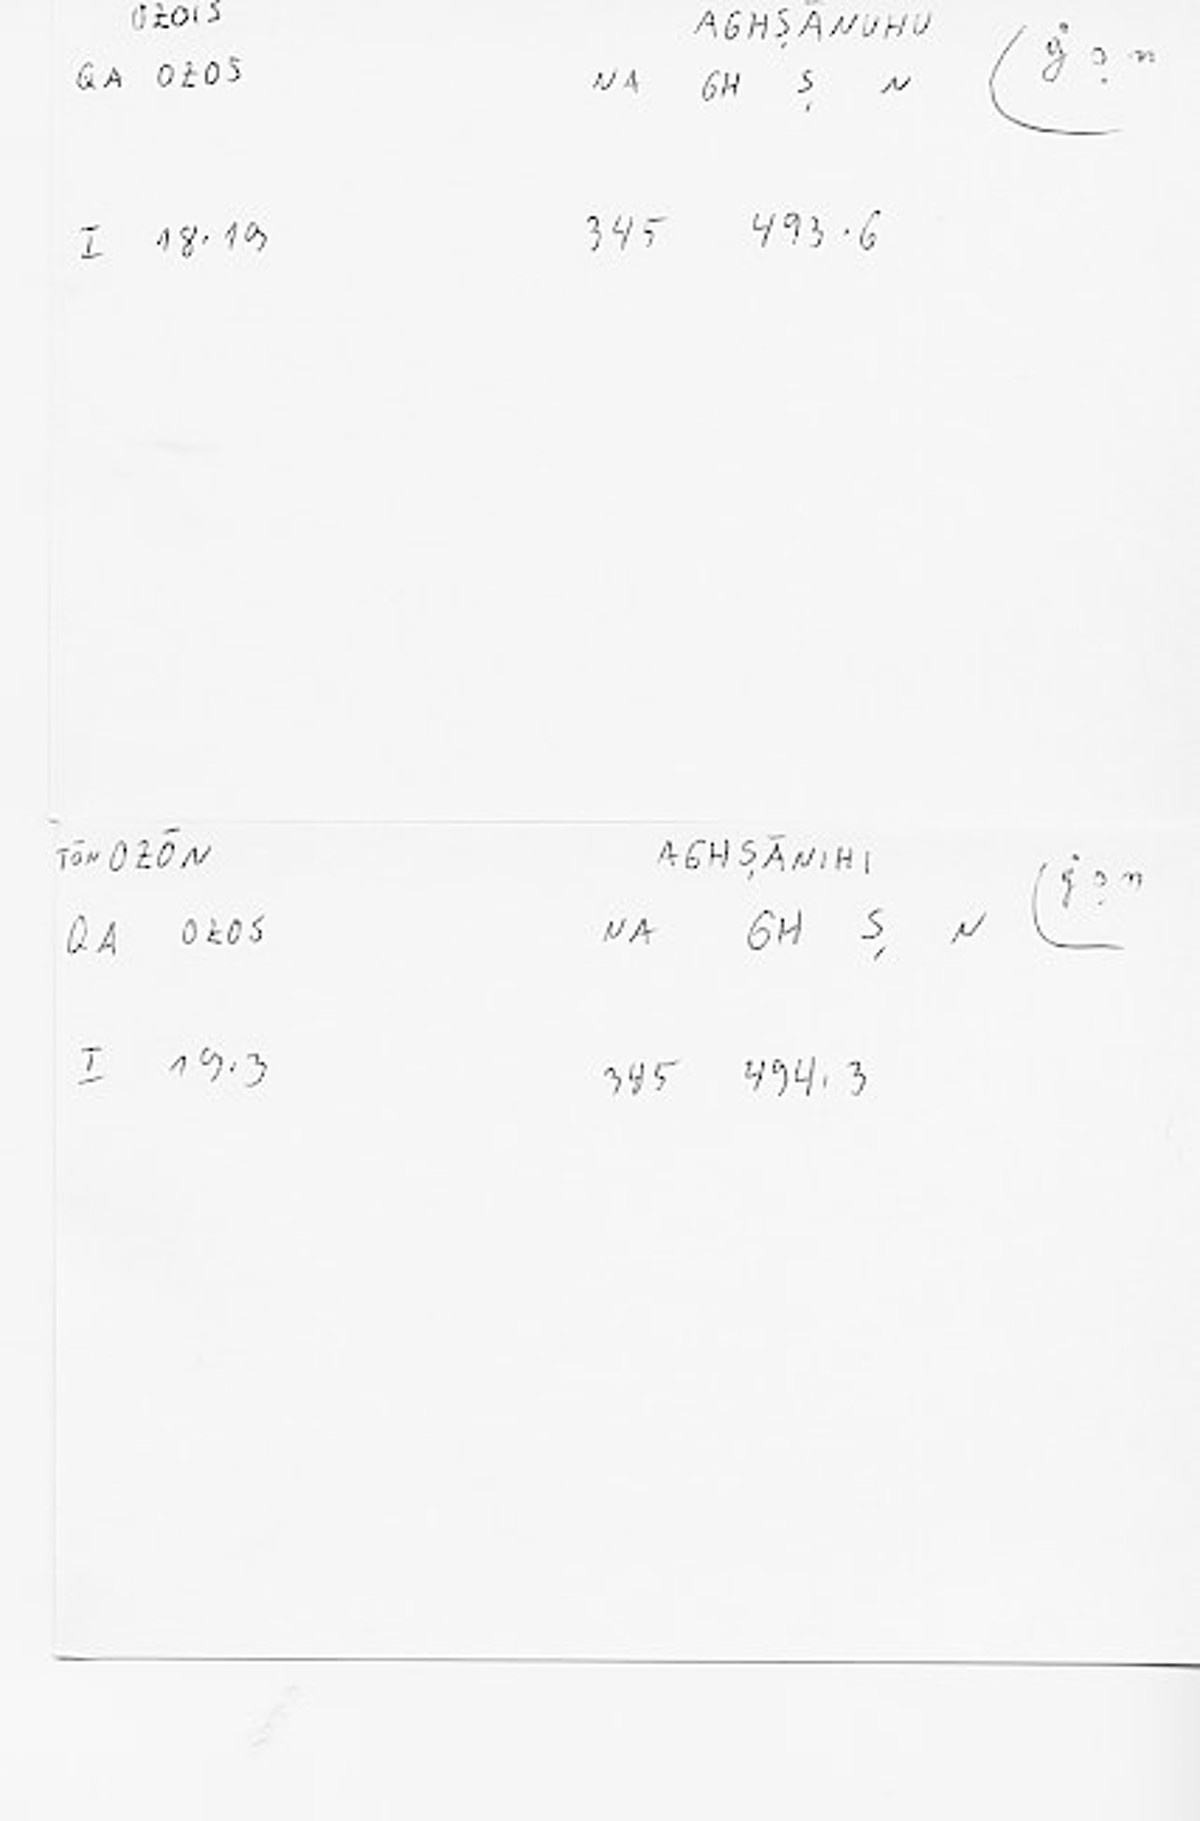 OZOIS AGHṢĀNUHU
QA OZOS NA GH Ṣ N (ġ ṣ n
I 18.19 345 493.6
TŌN OZŌN AGHṢĀNIHI
QA OZOS NA GH Ṣ N (ġ ṣ n
I 19.3 345 494.3